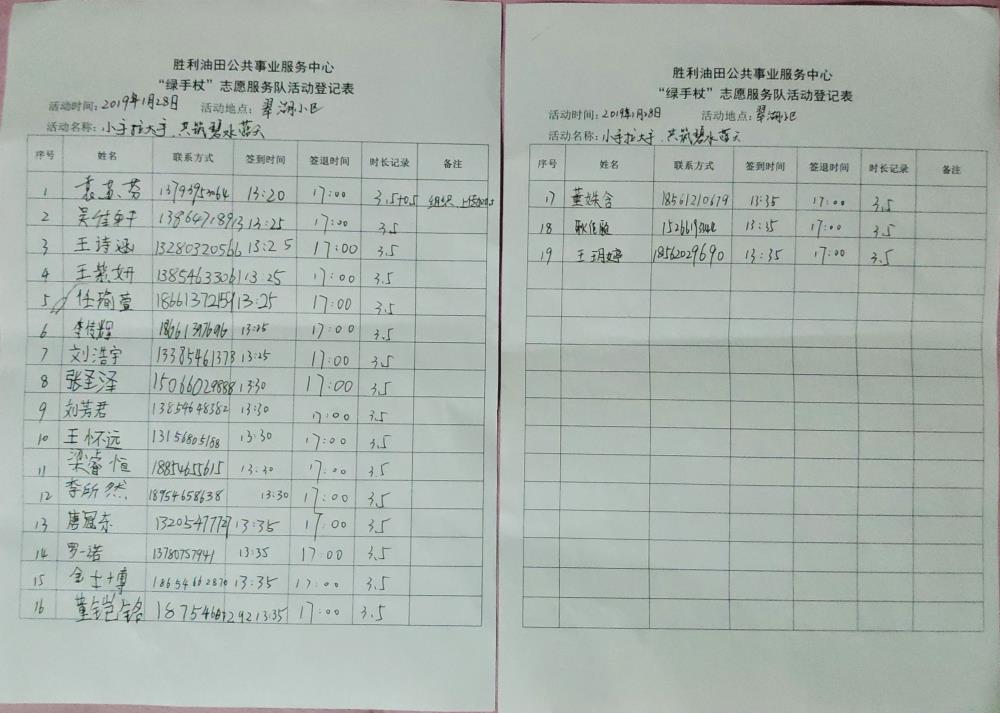 胜利油田公共事业服务中心
“绿手杖”志愿服务队活动登记表
活动时间：2019年1月28日 活动地点：翠湖小区
活动名称：小手拉大手，共筑碧水蓝天
序号 姓名 联系方式 签到时间 签退时间 时长记录 备注
1 13:20 17:00 3.5+0.5 组织
2 13:25 17:00 3.5
3 王诗涵 13280320566 13:25 17:00 3.5
4 王紫妍 13854633061 13:25 17:00 3.5
5 任瑜萱 18661372159 13:25 17:00 3.5
6 李佳辉 18661397696 13:25 17:00 3.5
7 刘浩宇 13385461373 13:25 17:00 3.5
8 张圣泽 15066029888 13:30 17:00 3.5
9 刘芳君 13854648382 13:30 17:00 3.5
10 王怀远 13156805188 13:30 17:00 3.5
11 梁睿恒 18854655615 13:30 17:00 3.5
12 李所然 18954658638 13:30 17:00 3.5
13 唐冠东 13205477727 13:35 17:00 3.5
14 罗一诺 13780757941 13:35 17:00 3.5
15 金士博 18654662870 13:35 17:00 3.5
16 董铠铭 13:35 17:00 3.5
胜利油田公共事业服务中心
“绿手杖”志愿服务队活动登记表
活动时间：2019年1月28日 活动地点：翠湖小区
活动名称：小手拉大手，共筑碧水蓝天
序号 姓名 联系方式 签到时间 签退时间 时长记录 备注
17 董姝含 18561210679 13:35 17:00 3.5
18 13:35 17:00 3.5
19 王玥婷 18562029690 13:35 17:00 3.5